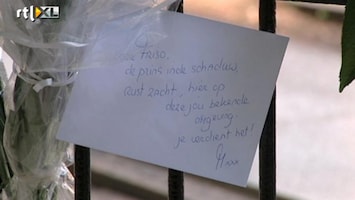 rtl XL
Lieve Friso,
de prins in de schaduw
Rust zacht, hier op
deze jou bekende
omgeving
je verdient het!